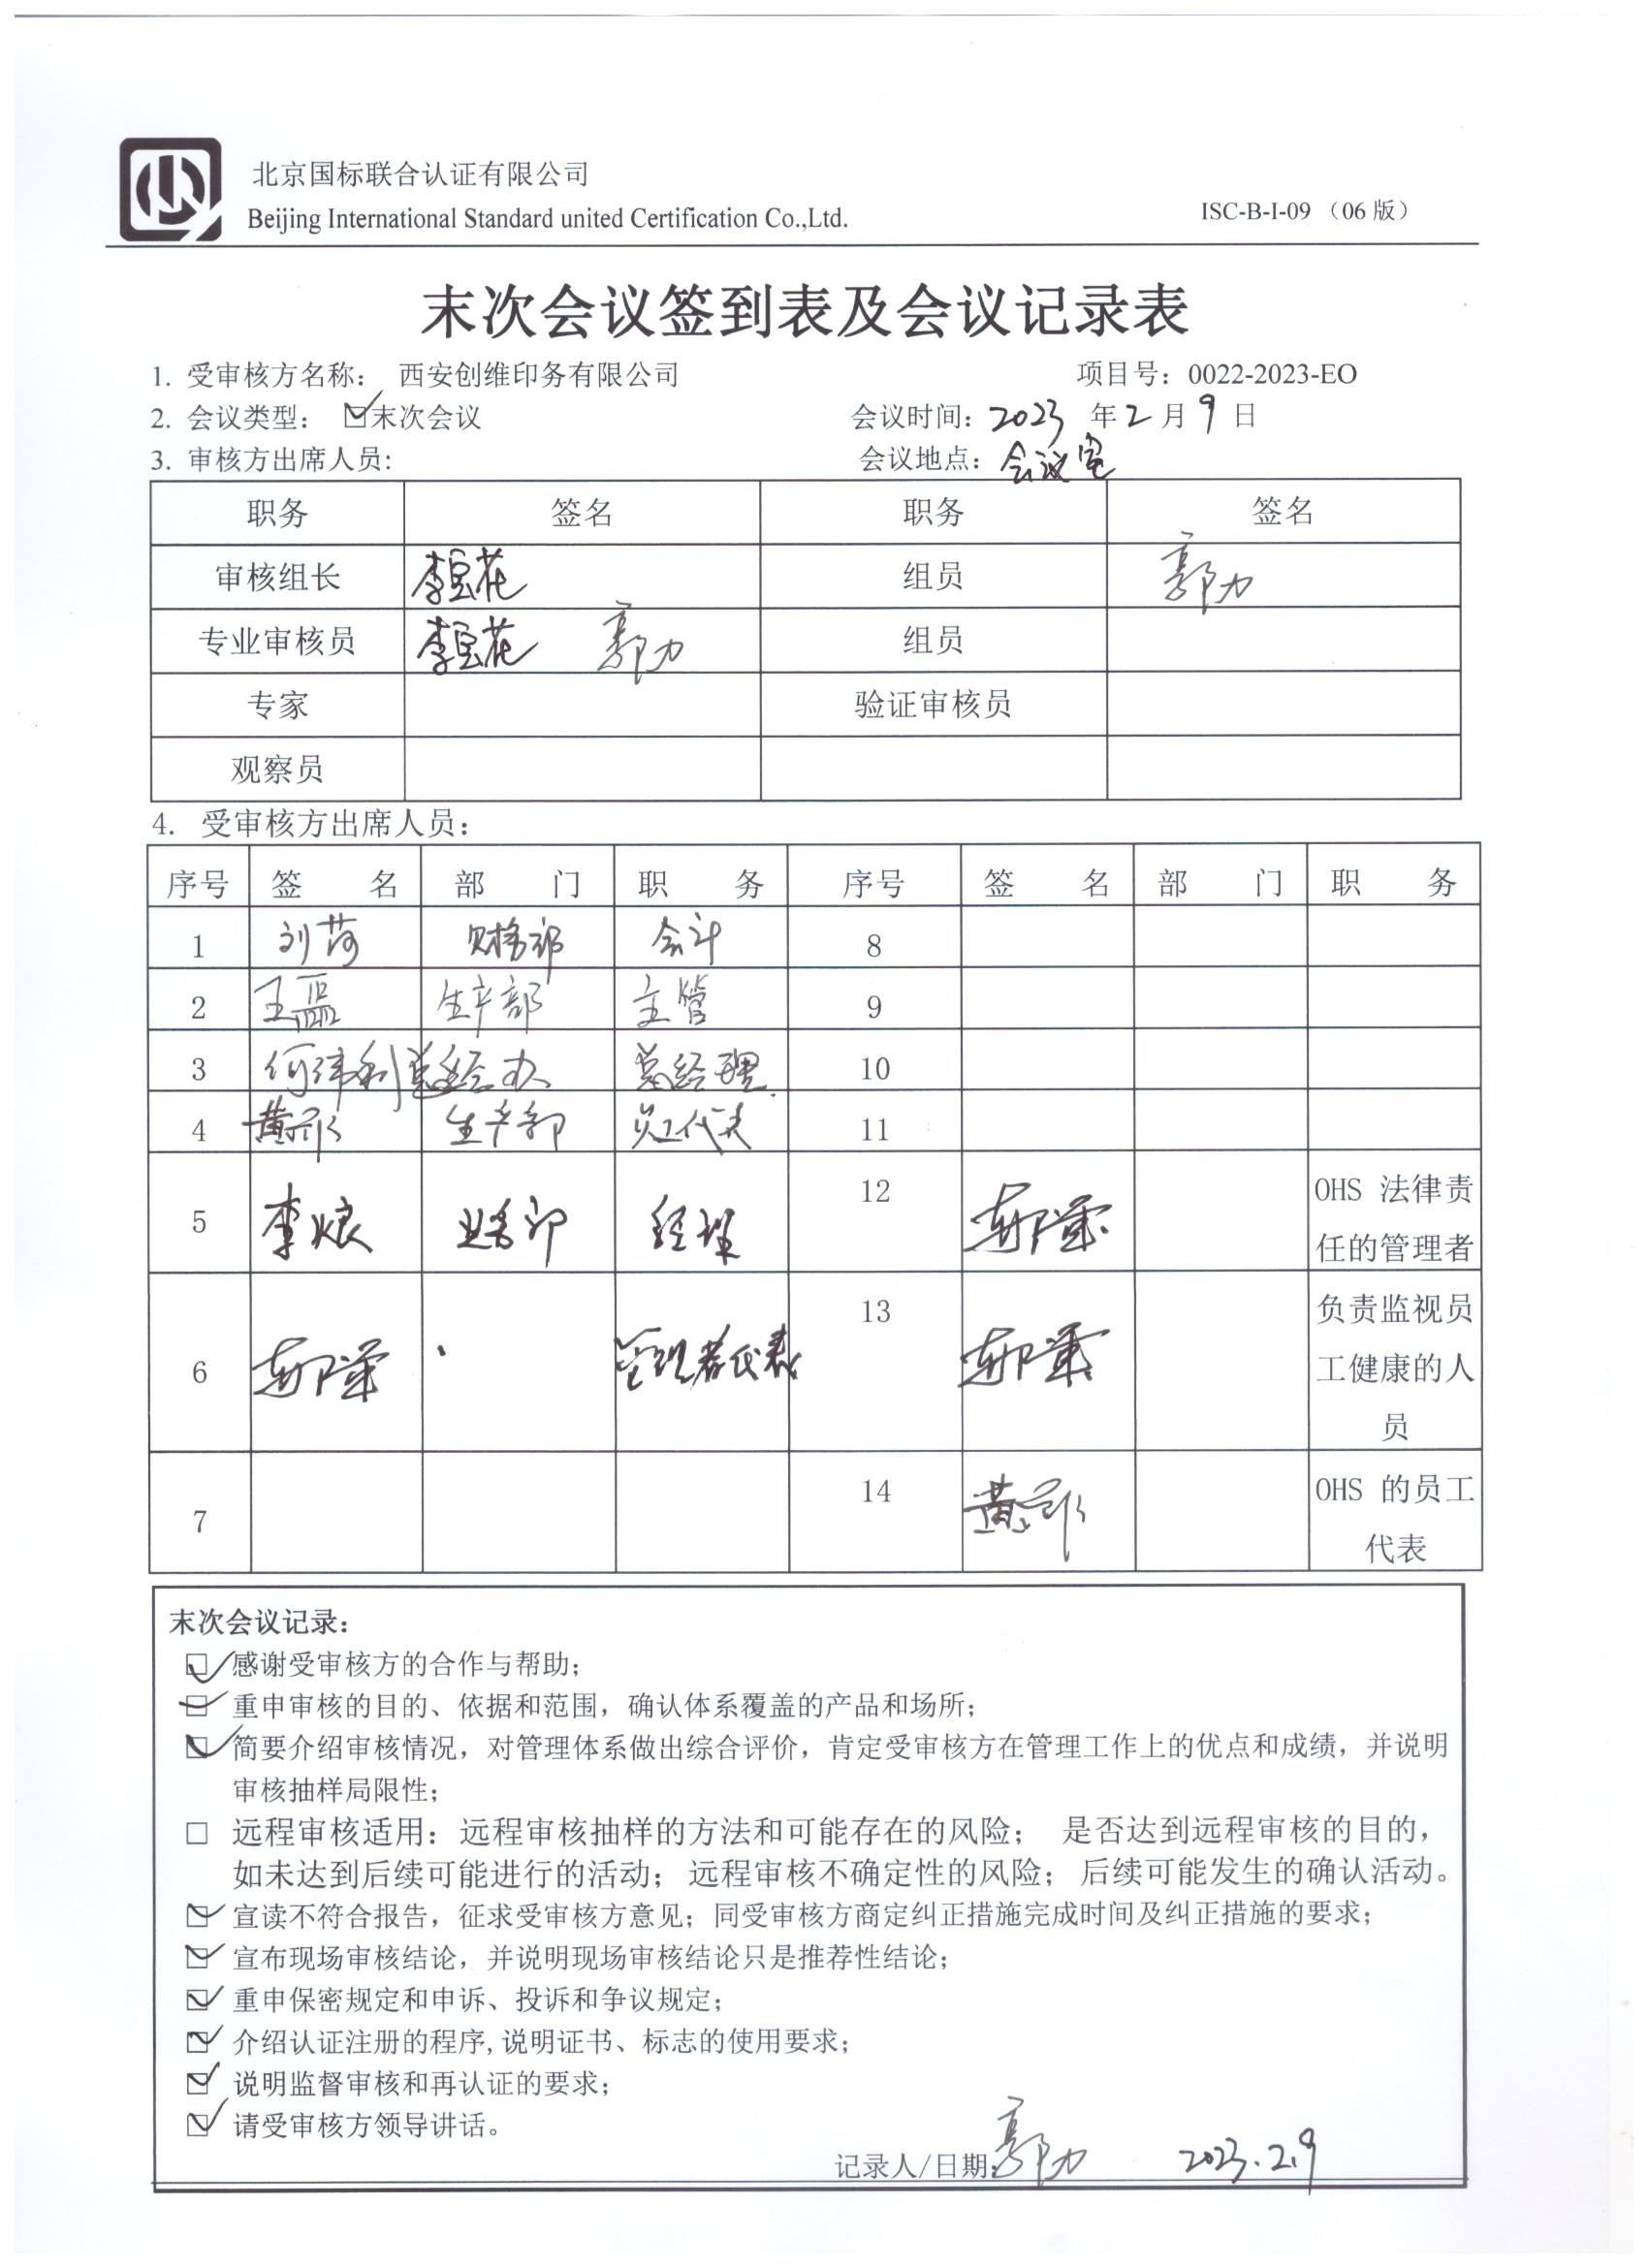 北京国标联合认证有限公司
Beijing International Standard united Certification Co.,Ltd.
ISC-B-I-09 （06 版）
末次会议签到表及会议记录表
1. 受审核方名称： 西安创维印务有限公司 项目号：0022-2023-EO
2. 会议类型： 末次会议 会议时间：2023 年 2 月 9 日
3. 审核方出席人员： 会议地点：会议室
职务 签名 职务 签名
审核组长 李宝花 组员 郭力
专业审核员 李宝花 郭力 组员
专家 验证审核员
观察员
4. 受审核方出席人员：
序号 签 名 部 门 职 务 序号 签 名 部 门 职 务
1 刘 财务部 会计 8
2 王 生产部 主管 9
3 何伟利 总经办 总经理 10
4 黄 生产部 员工代表 11
5 李 业务部 经理 12 OHS 法律责
任的管理者
6 管理者代表 13 负责监视员
工健康的人
员
7 14 黄 OHS 的员工
代表
末次会议记录：
☑感谢受审核方的合作与帮助；
☑重申审核的目的、依据和范围，确认体系覆盖的产品和场所；
☑简要介绍审核情况，对管理体系做出综合评价，肯定受审核方在管理工作上的优点和成绩，并说明
审核抽样局限性；
□ 远程审核适用：远程审核抽样的方法和可能存在的风险； 是否达到远程审核的目的，
如未达到后续可能进行的活动； 远程审核不确定性的风险； 后续可能发生的确认活动。
☑宣读不符合报告，征求受审核方意见；同受审核方商定纠正措施完成时间及纠正措施的要求；
☑宣布现场审核结论，并说明现场审核结论只是推荐性结论；
☑重申保密规定和申诉、投诉和争议规定；
☑介绍认证注册的程序,说明证书、标志的使用要求；
☑说明监督审核和再认证的要求；
☑请受审核方领导讲话。
记录人/日期：郭力 2023.2.9